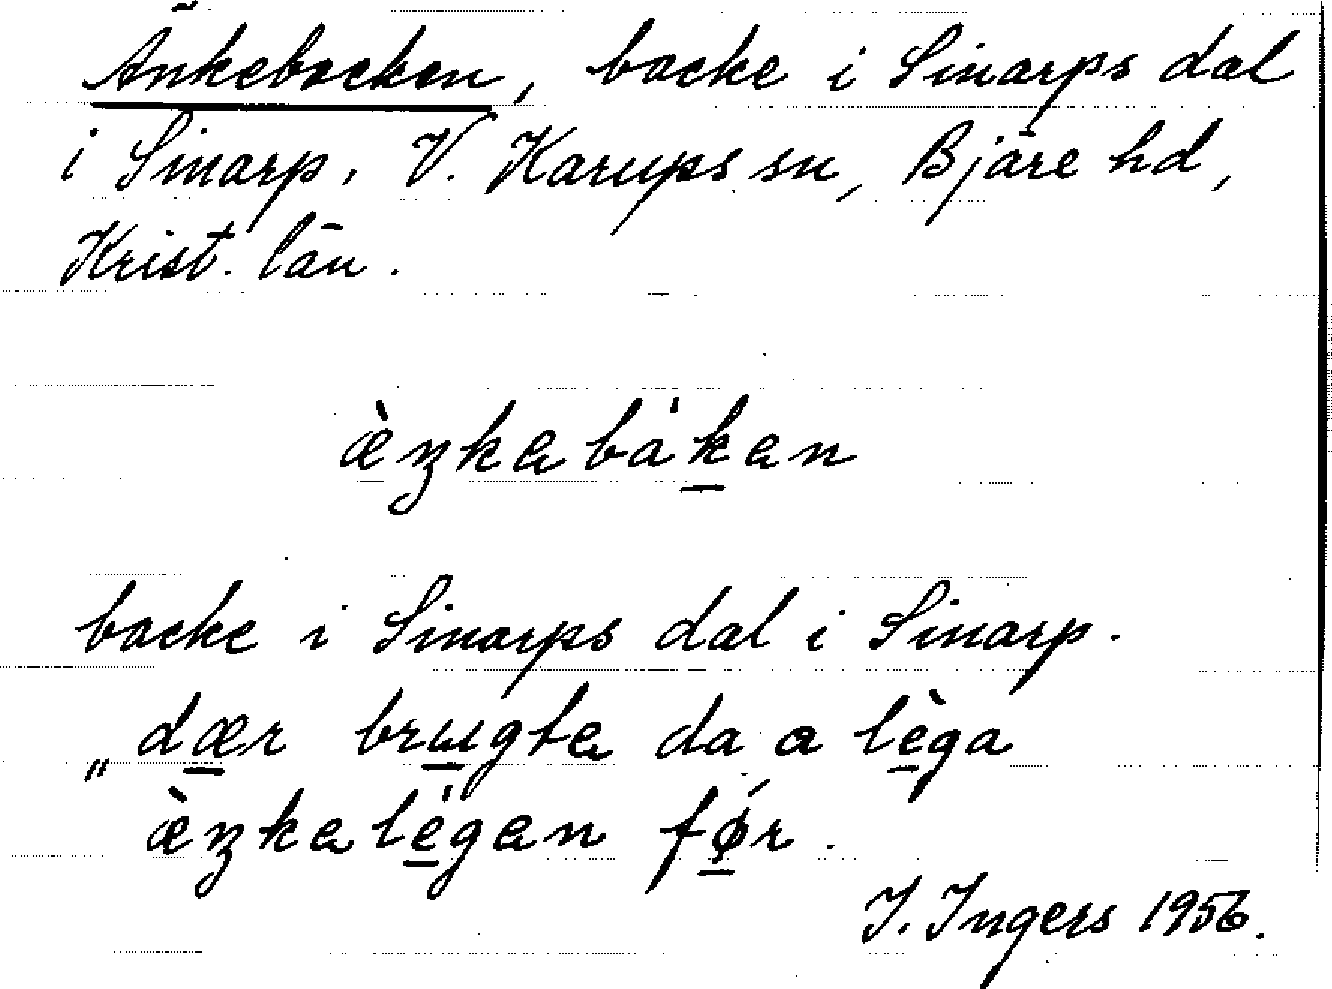 Änkebacken, backe i Sinarps dal
i Sinarp, V. Karups sn, Bjäre hd,
Krist. län.
æ̀ŋkəbàk̲ən
backe i Sinarps dal i Sinarp.
„dæ̲r brɯ̲gtə da a lè̲ga
æ̀ŋkəlè̲gən fǿ̲r.
I. Ingers 1956.